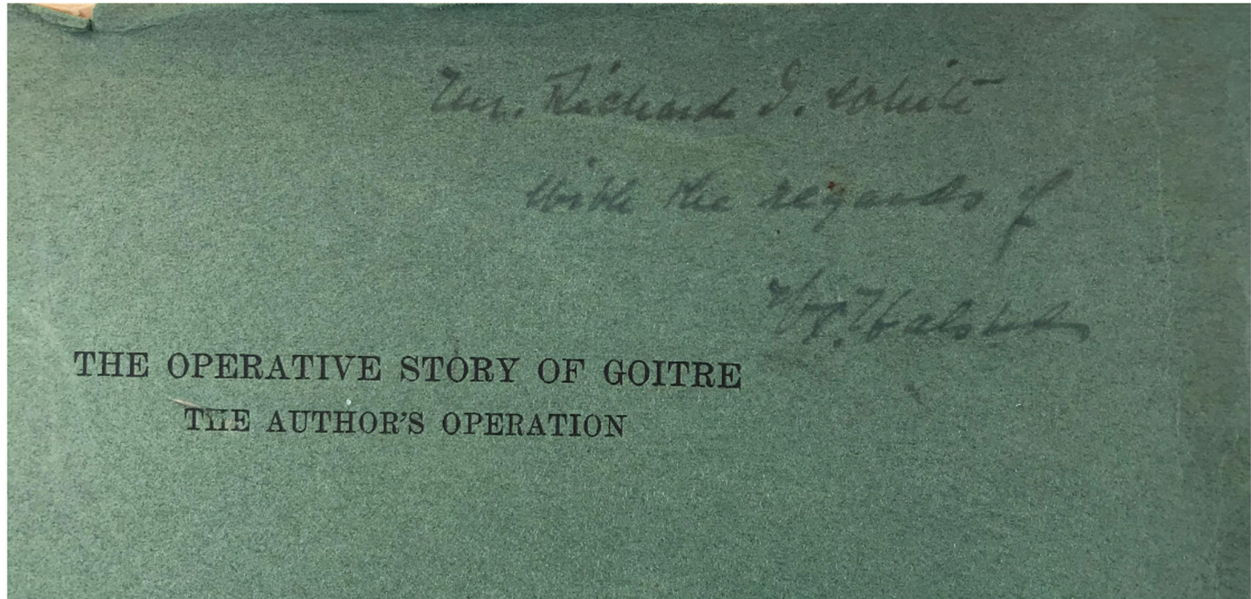 Mr. Richard J. White
With the regards of
W. S. Halsted
THE OPERATIVE STORY OF GOITRE
THE AUTHOR'S OPERATION